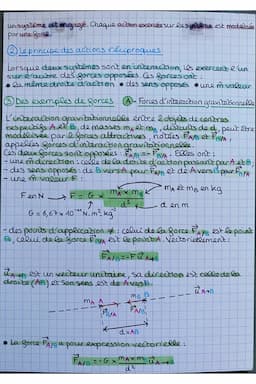 un système est engagé. Chaque action exercée sur le système est modélisée
par une force.
② Le principe des actions réciproques
Lorsque deux systèmes sont en interaction, ils exercent l'un
sur l'autre des forces opposées. Ces forces ont :
• la même direction d'action • des sens opposés • une m̂ valeur
③ Des exemples de forces Ⓐ - Forces d'interaction gravitationnelle
L'interaction gravitationnelle entre 2 objets de centres
respectifs A et B, de masses mA et mB, distants de d, peut être
modélisée par 2 forces attractives, notées FA/B et FB/A,
appelées forces d'interaction gravitationnelle.
Ces deux forces sont opposées : FA/B = - FB/A. Elles ont :
- une m̂ direction : celle de la droite d'action passant par A et B;
- des sens opposés : de B vers A pour FA/B et de A vers B pour FB/A
- une m̂ valeur F :
F en N F = G × mA × mB / d² mA et mB en kg
d en m
G = 6,67 × 10⁻¹¹ N.m².kg⁻²
- des points d'application ≠ : celui de la force FA/B est le point
B, celui de la force FB/A est le point A. Vectoriellement :
FA/B = - F uA→B
uA→B est un vecteur unitaire, sa direction est celle de la
droite (AB) et son sens est de A vers B.
mA A mB B uA→B
FB/A FA/B
d = AB
• La force FA/B a pour expression vectorielle :
FA/B = - G × mA × mB / d² uA→B